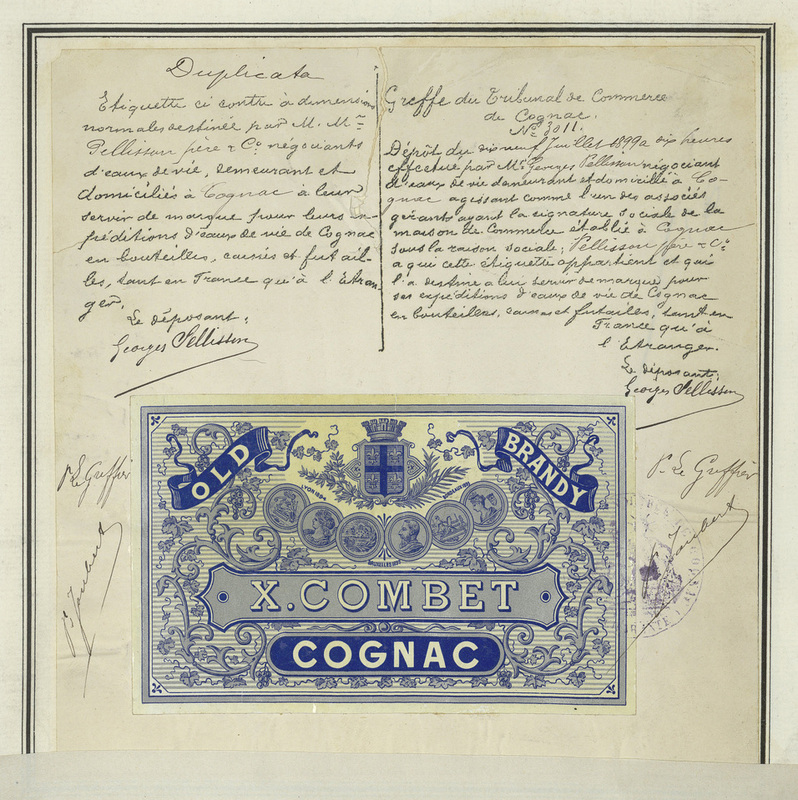 Duplicata
Etiquette ci contre à dimensions
normales destinée par M. Mrs
Pellisson père & Co négociants
d'eaux de vie, demeurant et
domiciliés à Cognac à leur
servir de marque pour leurs ex-
péditions d'eaux de vie de Cognac
en bouteilles, caisses et futail-
les, tant en France qu'à l'Etran-
ger.
Le déposant:
Georges Pellisson
Greffe du Tribunal de Commerce
de Cognac.
No 3011.
Dépôt du dix neuf Juillet 1899 à dix heures
effectué par Mr Georges Pellisson négociant
d'eaux de vie demeurant et domicilié à Co-
gnac agissant comme l'un des associés
gérants ayant la signature sociale de la
maison de Commerce établie à Cognac
sous la raison sociale; Pellisson père & Co
a qui cette étiquette appartient et qui
l'a destine a leur servir de marque pour
ses expéditions d'eaux de vie de Cognac
en bouteilles, caisses et futailles, tant en
France qu'à
l'Etranger.
Le déposant:
Georges Pellisson
Pr Le Greffier
P. Le Greffier
OLD
BRANDY
LYON 1894
BORDEAUX 1895
BRUXELLES 1897
X. COMBET
COGNAC